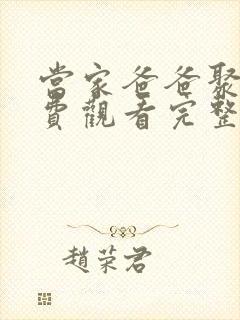 當家爸爸聚
費觀看完整
趙荣君